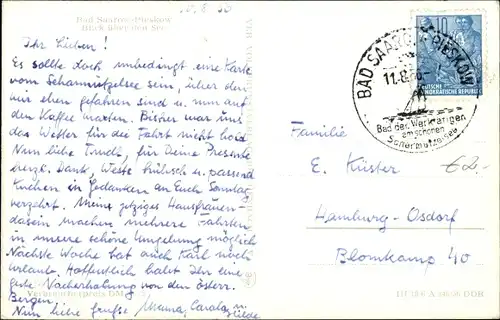 11.8.56
Bad Saarow-Pieskow
Blick über den See
Ihr Lieben!
Es sollte doch unbedingt eine Karte
vom Scharmützelsee sein, über den
wir eben gefahren sind u. nun auf
den Kaffee warten. Bisher war uns
das Wetter für die Fahrt nicht hold
Nun liebe Trudl, für Deine Presente
herzl. Dank, Weste hübsch u. passend
Kuchen in Gedanken an Euch Sonntag
verzehrt. Meine jetziges Hausfrauen-
dasein machen mehrere Fahrten
in unsere schöne Umgebung möglich
Nächste Woche hat auch Karl noch
Urlaub. Hoffentlich habt Ihr eine
gute Nacherholung von den österr.
Bergen.
Verbraucherpreis DM
Nun liebe Grüße Mama, Carola u.
Hilde
BAD SAAROW-PIESKOW
11.8.56
Bad der Werktätigen
am schönen
Scharmützelsee
DEUTSCHE
DEMOKRATISCHE REPUBLIK
Familie
E. Küster
€2.-
Hamburg-Osdorf
Blomkamp 40
DDR